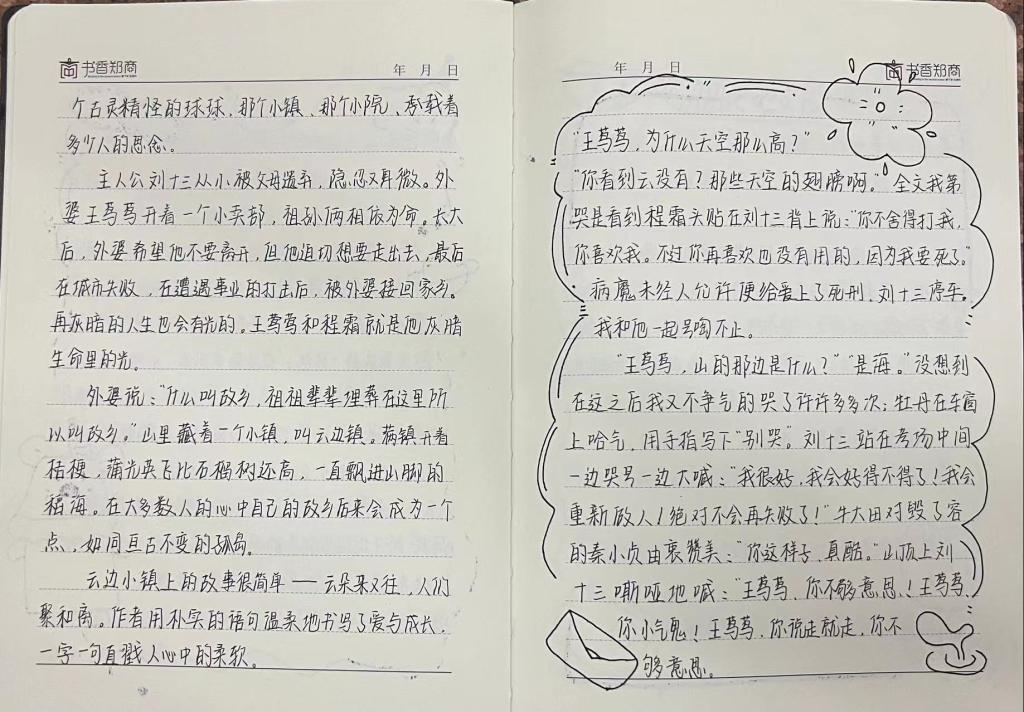 书香郑商
年 月 日
个古灵精怪的球球，那个小镇、那个小院、承载着
多少人的思念。
主人公刘十三从小被父母遗弃，隐忍又卑微。外
婆王莺莺开着一个小卖部，祖孙俩相依为命。长大
后，外婆希望他不要离开，但他迫切想要走出去，最后
在城市失败，在遭遇事业的打击后，被外婆接回家乡。
再灰暗的人生也会有光的。王莺莺和程霜就是他灰暗
生命里的光。
外婆说：“什么叫故乡，祖祖辈辈埋葬在这里所
以叫故乡。”山里藏着一个小镇，叫云边镇。满镇开着
桔梗，蒲公英飞比石榴树还高，一直飘进山脚的
稻海。在大多数人的心中自己的故乡后来会成为一个
点，如同亘古不变的孤岛。
云边小镇上的故事很简单——云朵来又往，人们
聚和离。作者用朴实的语句温柔地书写了爱与成长，
一字一句直戳人心中的柔软。
年 月 日
书香郑商
“王莺莺，为什么天空那么高？”
“你看到云没有？那些天空的翅膀啊。”全文我第
哭是看到程霜头贴在刘十三背上说：“你不舍得打我，
你喜欢我。不过你再喜欢也没有用的，因为我要死了”
病魔未经人允许便给爱上了死刑，刘十三停车，
我和他一起号啕不止。
“王莺莺，山的那边是什么？”“是海。”没想到
在这之后我又不争气的哭了许许多多次；牡丹在车窗
上哈气，用手指写下“别哭”。刘十三站在考场中间
一边哭号一边大喊：“我很好，我会好得不得了！我会
重新做人！绝对不会再失败了！”牛大田对毁了容
的秦小贞由衷赞美：“你这样子，真酷。”山顶上刘
十三嘶哑地喊：“王莺莺，你不够意思！王莺莺，
你小气鬼！王莺莺，你说走就走，你不
够意思。